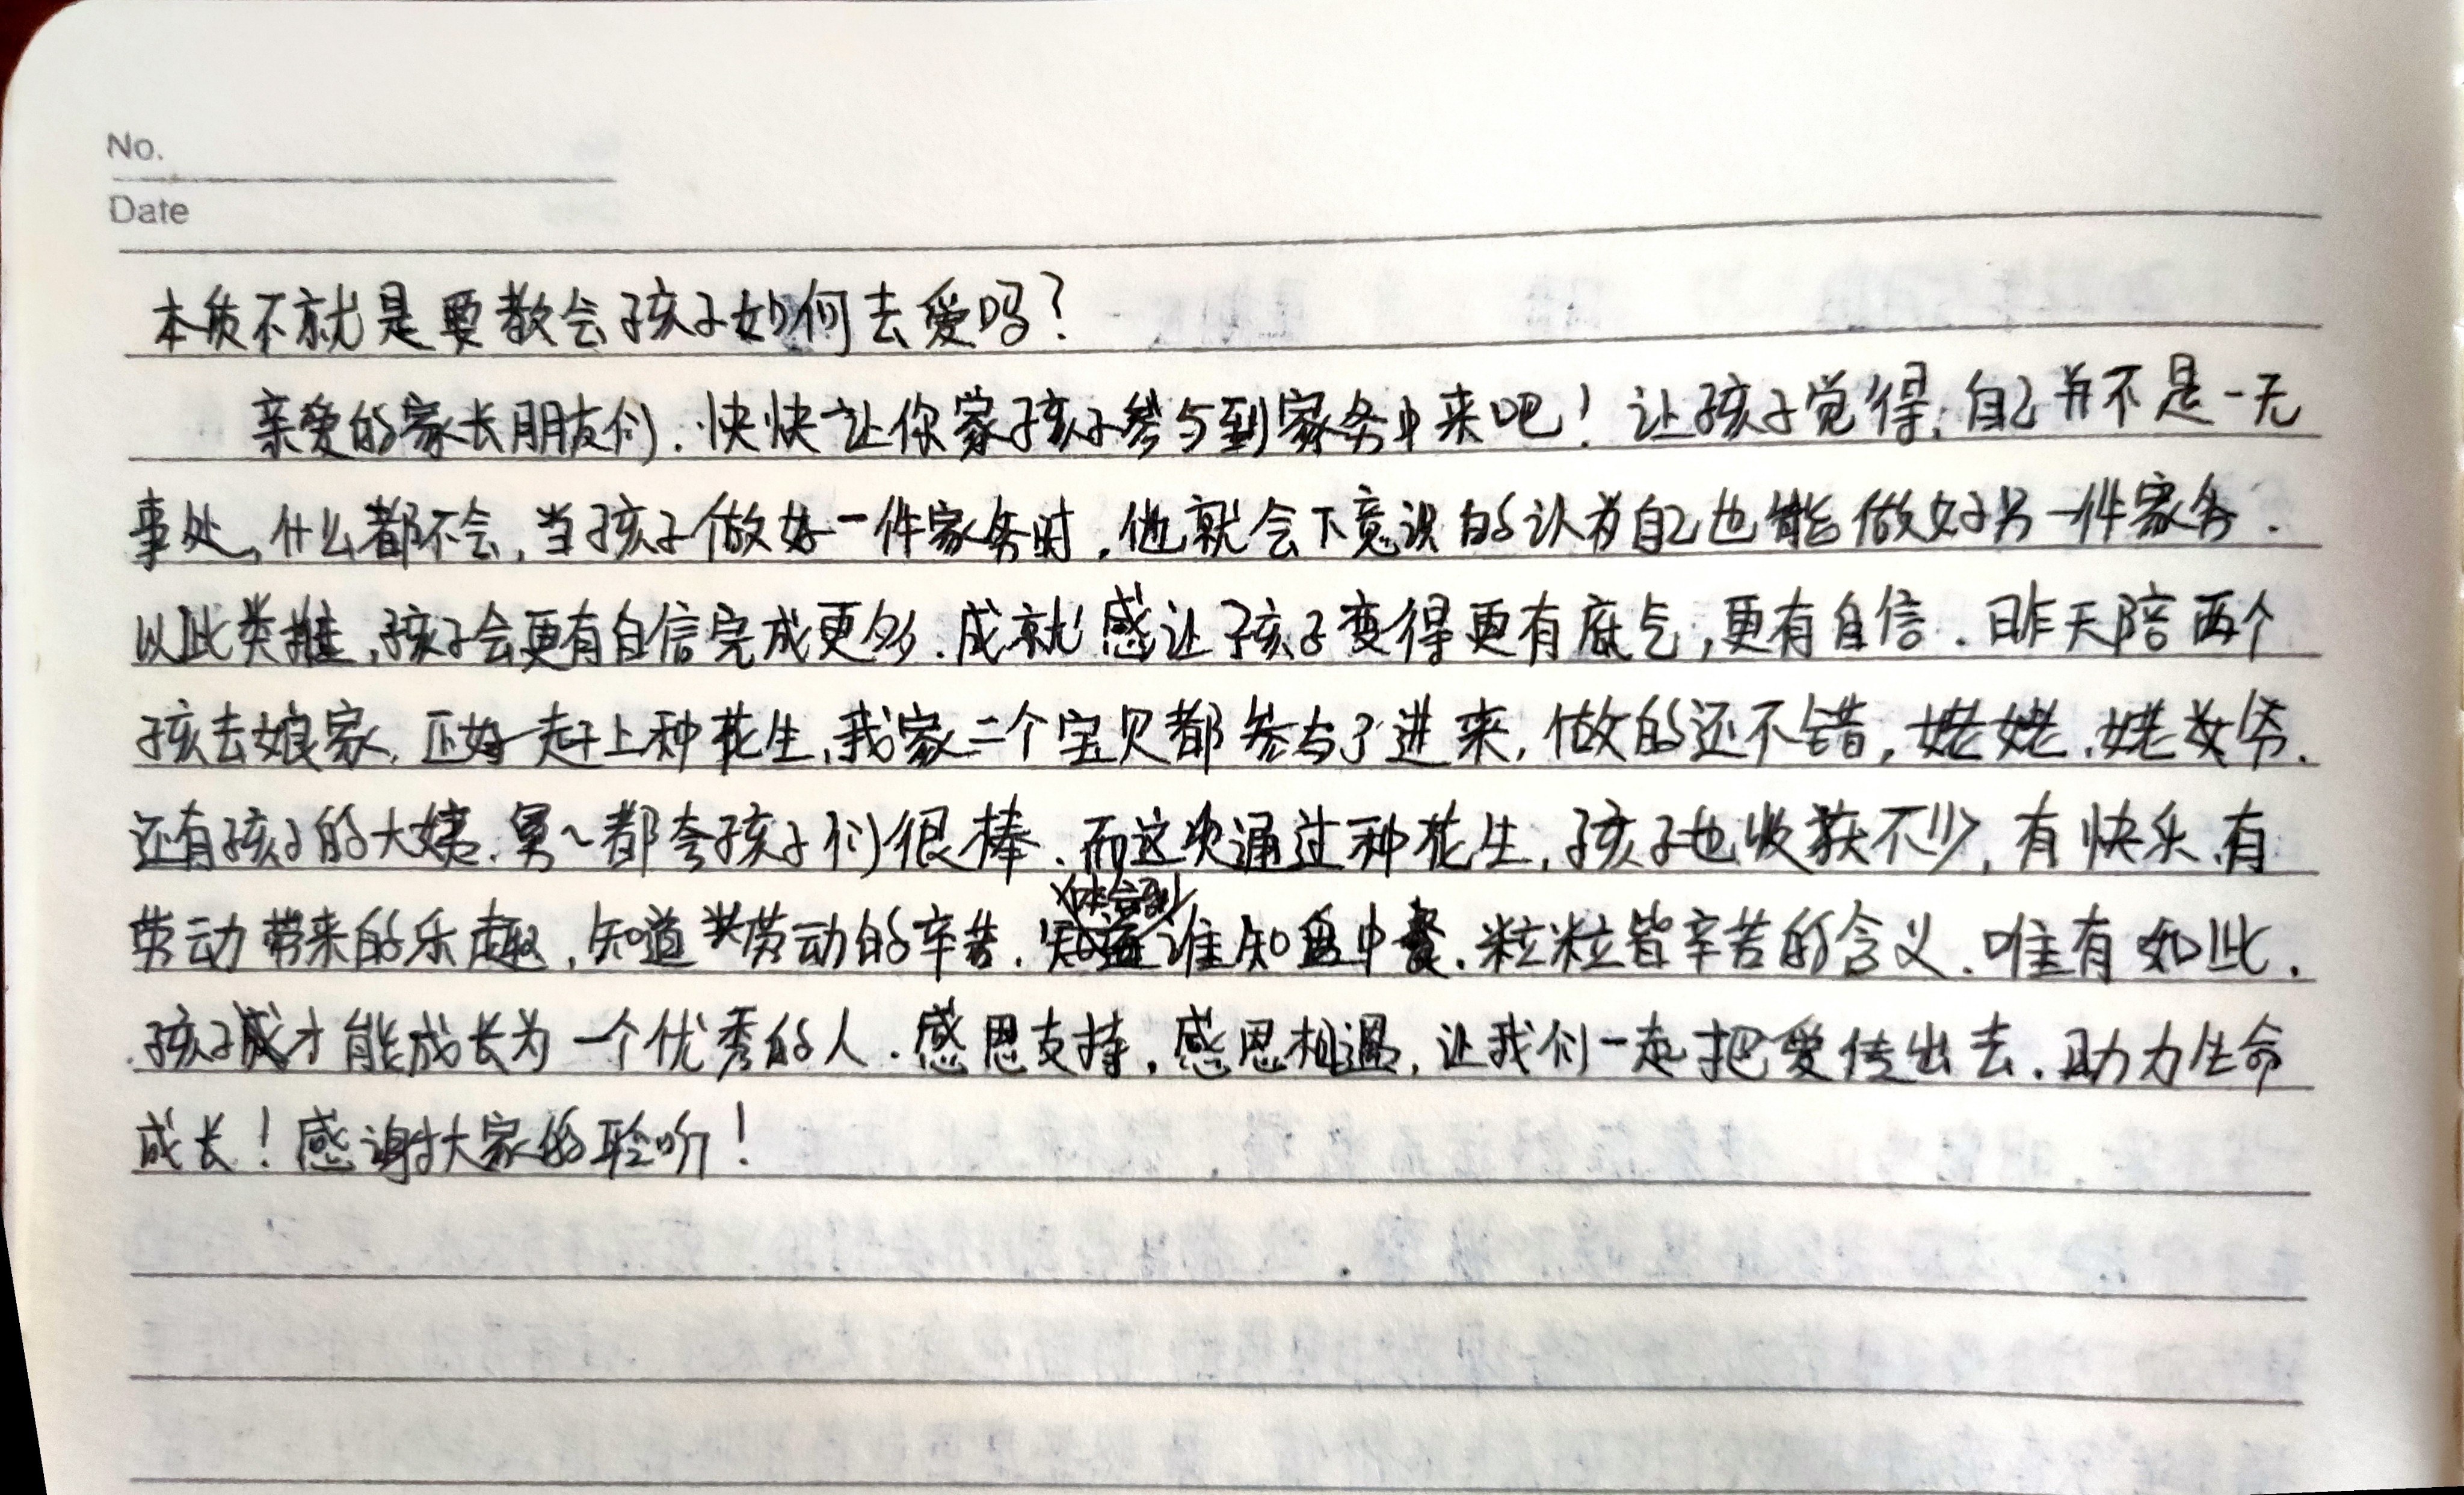 No.
Date
本质不就是要教会孩子如何去爱吗?
亲爱的家长朋友们.快快让你家孩子参与到家务中来吧!让孩子觉得,自己并不是一无
事处,什么都不会,当孩子做好一件家务时,他就会下意识的认为自己也能做好另一件家务.
以此类推,孩子会更有自信完成更多.成就感让孩子变得更有底气,更有自信.昨天陪两个
孩去娘家,正好赶上种花生,我家二个宝贝都参与了进来,做的还不错,姥姥.姥爷.
还有孩子的大姨.舅~都夸孩子们很棒.而这次通过种花生,孩子也收获不少,有快乐,有
劳动带来的乐趣,知道劳动的辛苦.体会到谁知盘中餐.粒粒皆辛苦的含义.唯有如此.
孩子才能成长为一个优秀的人.感恩支持,感恩相遇,让我们一起把爱传出去.助力生命
成长!感谢大家的聆听!